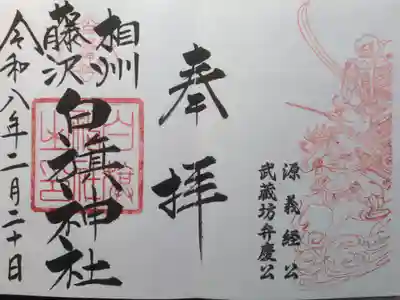 源義経公
武蔵坊弁慶公
奉拝
相州
藤沢
白旗神社
令和八年二月二十日